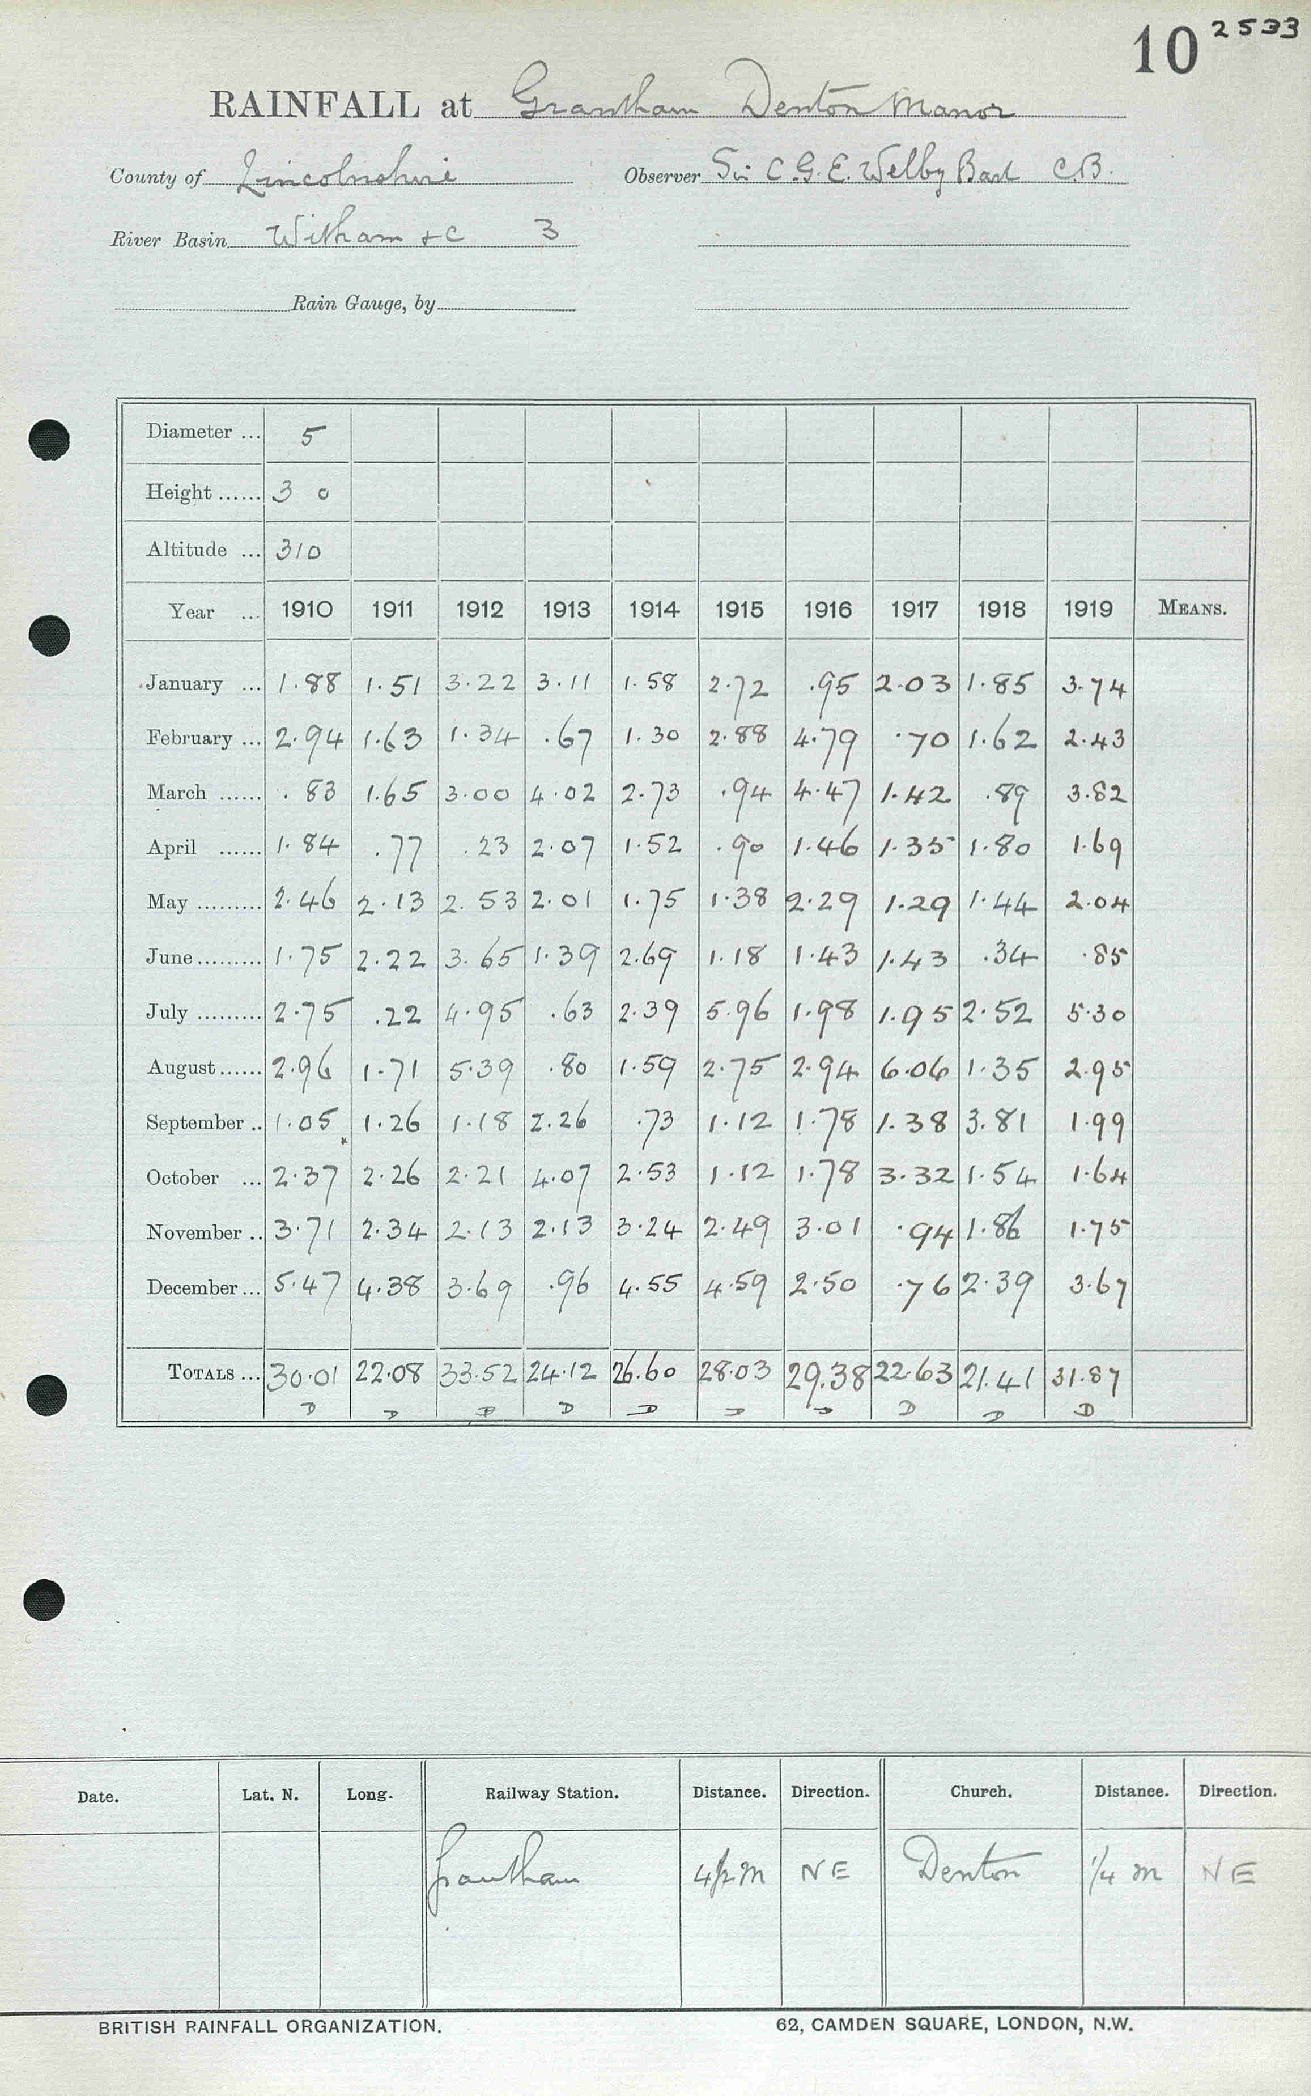 10 2533
RAINFALL at Grantham Denton Manor
County of Lincolnshire Observer Sir C.G.E. Welby Bart C.B.
River Basin Witham & C 3
Rain Gauge, by
Diameter ... 5
Height ...... 3 0
Altitude ... 310
Year ... 1910 1911 1912 1913 1914 1915 1916 1917 1918 1919 MEANS.
January ... 1.88 1.51 3.22 3.11 1.58 2.72 .95 2.03 1.85 3.74
February ... 2.94 1.63 1.34 .67 1.30 2.88 4.79 .70 1.62 2.43
March ...... .83 1.65 3.00 4.02 2.73 .94 4.47 1.42 .89 3.82
April ...... 1.84 .77 .23 2.07 1.52 .90 1.46 1.35 1.80 1.69
May ......... 2.46 2.13 2.53 2.01 1.75 1.38 2.29 1.29 1.44 2.04
June ......... 1.75 2.22 3.65 1.39 2.69 1.18 1.43 1.43 .34 .85
July ......... 2.75 .22 4.95 .63 2.39 5.96 1.98 1.95 2.52 5.30
August ...... 2.96 1.71 5.39 .80 1.59 2.75 2.94 6.06 1.35 2.95
September .. 1.05 1.26 1.18 2.26 .73 1.12 1.78 1.38 3.81 1.99
October ... 2.37 2.26 2.21 4.07 2.53 1.12 1.78 3.32 1.54 1.64
November .. 3.71 2.34 2.13 2.13 3.24 2.49 3.01 .94 1.86 1.75
December ... 5.47 4.38 3.69 .96 4.55 4.59 2.50 .76 2.39 3.67
TOTALS ... 30.01 22.08 33.52 24.12 26.60 28.03 29.38 22.63 21.41 31.87
D D D D D D D D D D
Date. Lat. N. Long. Railway Station. Distance. Direction. Church. Distance. Direction.
Grantham 4½ m NE Denton ¼ m NE
BRITISH RAINFALL ORGANIZATION. 62, CAMDEN SQUARE, LONDON, N.W.